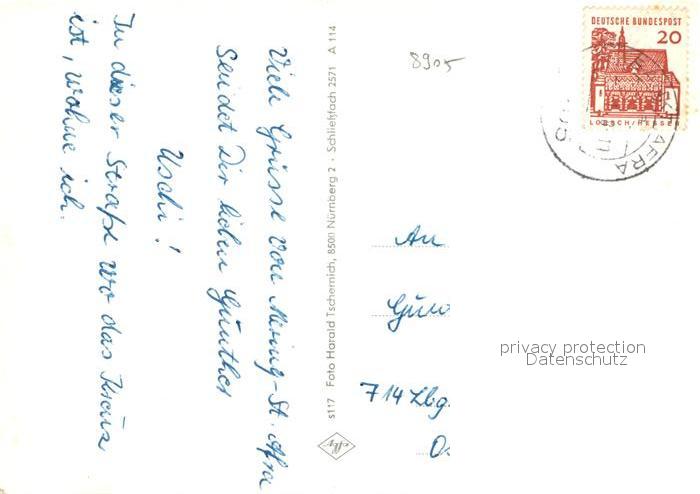 Viele Grüsse von Mering-St. Afra
sendet Dir lieber Günther
Uschi!
In dieser Straße wo das Kreuz
ist, wohne ich.
s117 Foto Harald Tschernich, 8500 Nürnberg 2 · Schließfach 2571 A 114
8905
DEUTSCHE BUNDESPOST
20
LORSCH/HESSEN
AFRA
An
714 Lbg.
privacy protection
Datenschutz